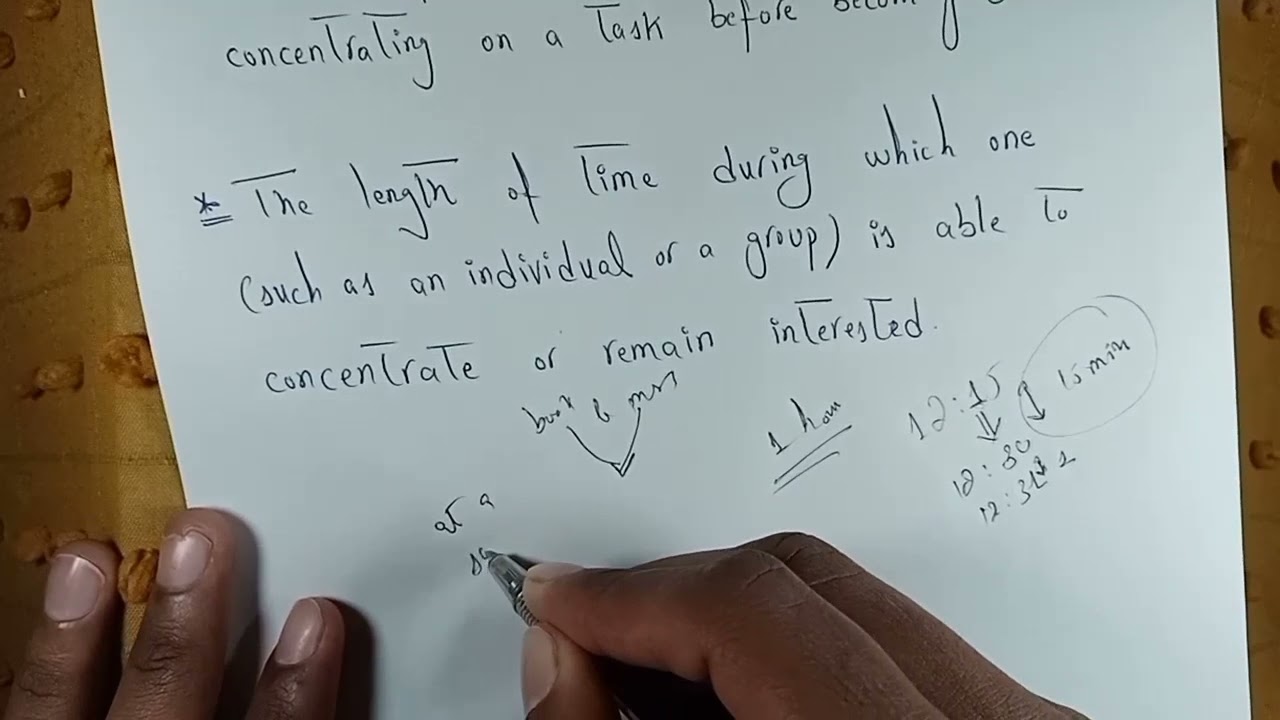 concentrating on a Task before
* The length of Time during which one
(such as an individual or a group) is able To
concentrate or remain interested.
1 hour
12:15
15 min
12:30
at a